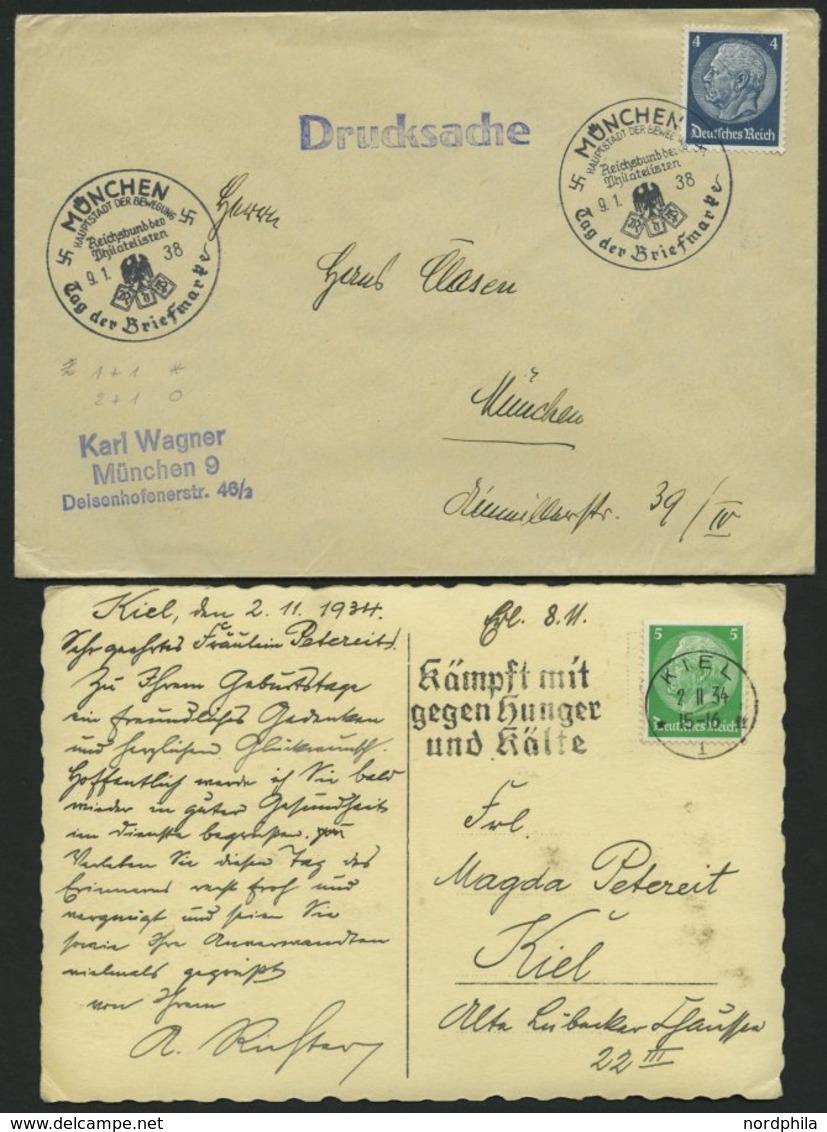 4 4
Deutsches Reich
Drucksache
MÜNCHEN
HAUPTSTADT DER BEWEGUNG
Reichsbund der
Philatelisten
9.1. 38
R d P
Tag der Briefmarke
MÜNCHEN
HAUPTSTADT DER BEWEGUNG
Reichsbund der
Philatelisten
9.1. 38
R d P
Tag der Briefmarke
Herrn
Hans Clasen
München
39/IV
1+1 *
2+1 O
Karl Wagner
München 9
Deisenhofenerstr. 46/2
Kiel, den 2. 11. 1934.
Sehr geehrtes Fräulein Petereit!
Zu Ihrem Geburtstage
ein freundliches Gedenken
und herzlichen Glückwunsch.
Hoffentlich werde ich Sie bald
wieder in guter Gesundheit
im Dienste begrüßen.
Verleben Sie diesen Tag des
Erinnerns recht froh und
vergnügt und seien Sie
sowie Ihre Anverwandten
vielmals gegrüßt
von Ihrem
A. Richter
8. 11.
Kämpft mit
gegen Hunger
und Kälte
5 5
Deutsches Reich
KIEL
2 11 34
15-16
1
Frl.
Magda Petereit
Kiel
Alte Lübecker Chaussee
22 III
nordphila